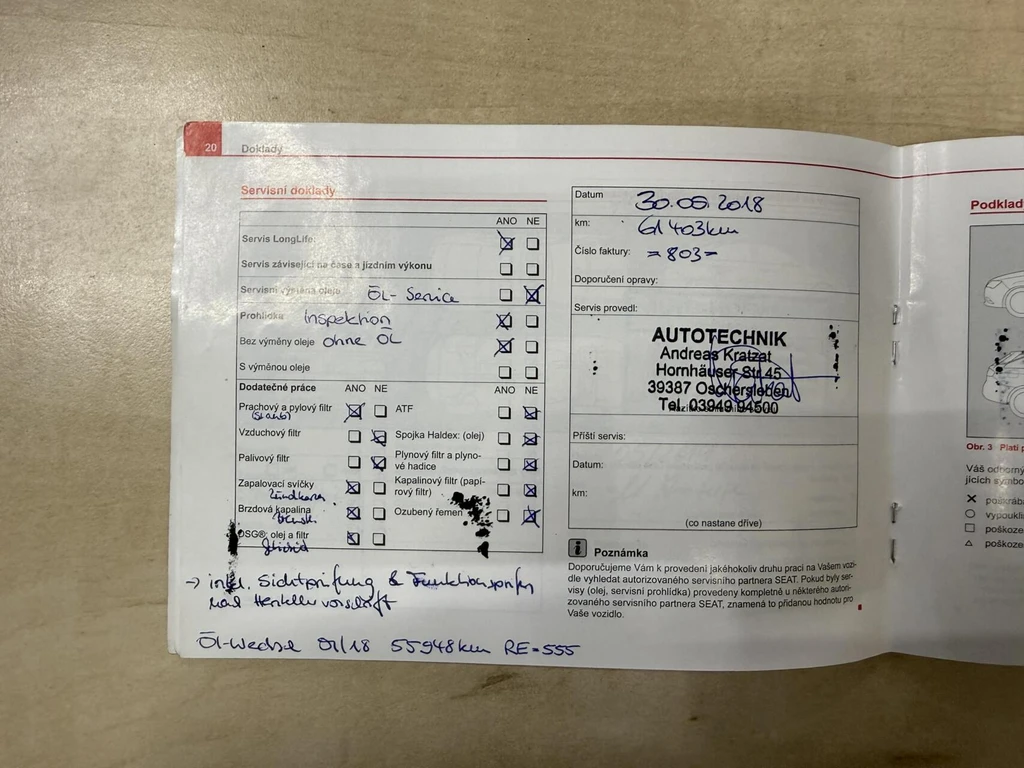 20 Doklady
Servisní doklady
ANO NE
Servis LongLife:
Servis závisející na čase a jízdním výkonu
Servisní výměna oleje ÖL-Service
Prohlídka Inspektion
Bez výměny oleje ohne ÖL
S výměnou oleje
Dodatečné práce ANO NE ANO NE
Prachový a pylový filtr ATF
(Staub)
Vzduchový filtr Spojka Haldex: (olej)
Palivový filtr Plynový filtr a plyno-
vé hadice
Zapalovací svíčky Kapalinový filtr (papí-
rový filtr)
Brzdová kapalina Ozubený řemen
DSG®: olej a filtr
→ inkl. Sichtprüfung & Funktionsprüfung
nach Herstellervorschrift
ÖL-Wechsel 01/18 55948km RE=555
Datum 30.05.2018
km: 61403km
Číslo faktury: =803=
Doporučení opravy:
Servis provedl:
AUTOTECHNIK
Andreas Kratzat
Hornhäuser Str. 45
39387 Oschersleben
Tel. 03949 94500
Příští servis:
Datum:
km:
(co nastane dříve)
i Poznámka
Doporučujeme Vám k provedení jakéhokoliv druhu prací na Vašem vozi-
dle vyhledat autorizovaného servisního partnera SEAT. Pokud byly ser-
visy (olej, servisní prohlídka) provedeny kompletně u některého autori-
zovaného servisního partnera SEAT, znamená to přidanou hodnotu pro
Vaše vozidlo.
Podklad
Obr. 3 Platí p
Váš odborný
jících symbo
poškráb
vypoukli
poškoze
poškoze